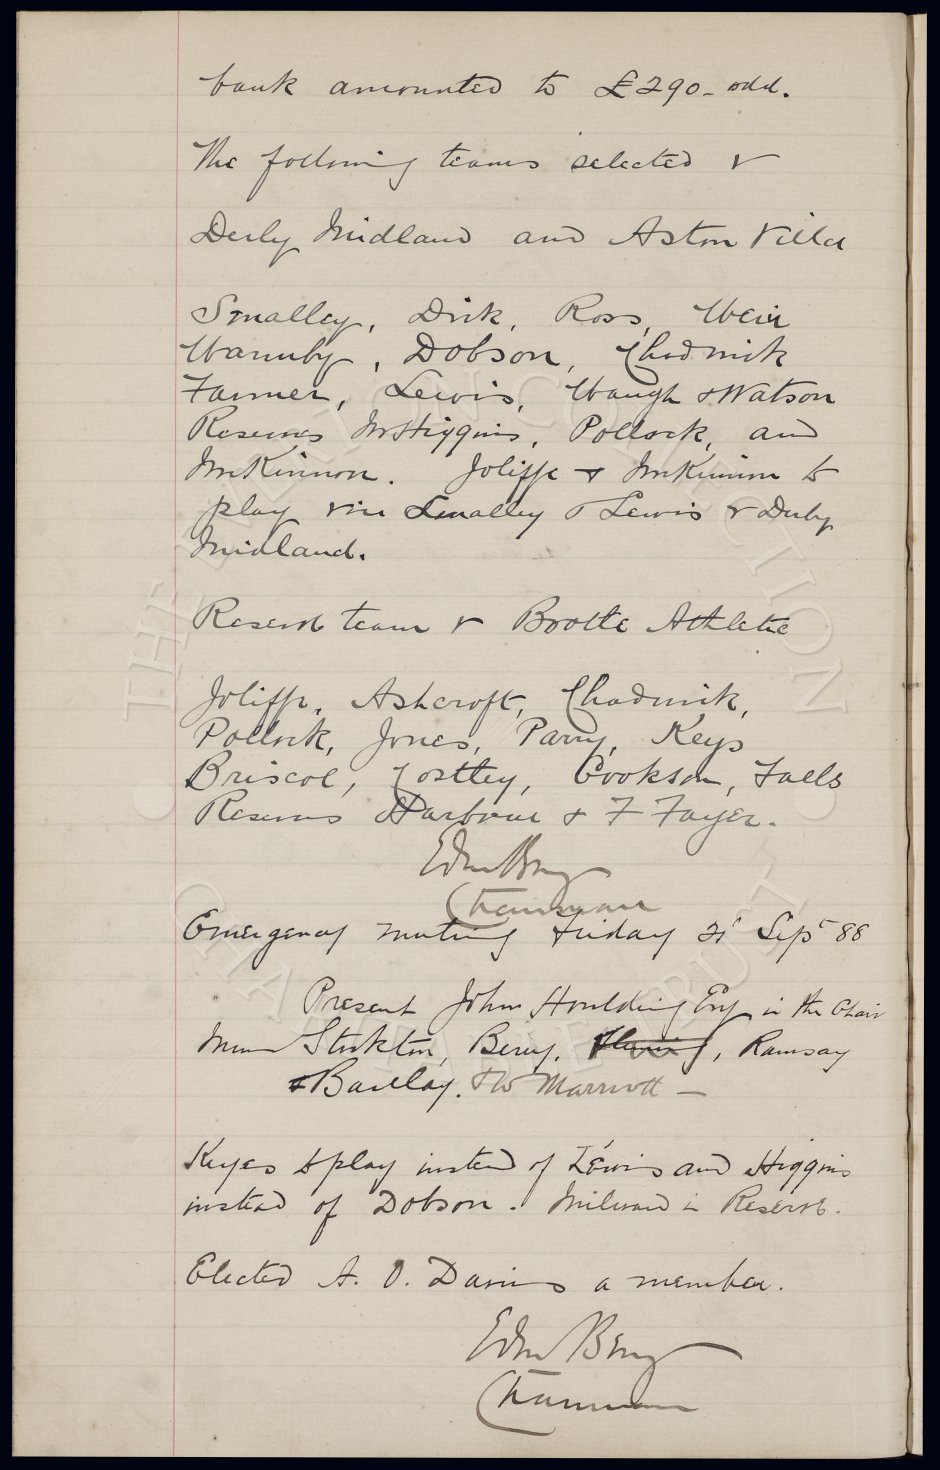 bank amounted to £290 - odd.
The following teams selected v
Derby Midland and Aston Villa
Smalley, Dick, Ross, Weir
Warmby, Dobson, Chadwick
Farmer, Lewis, Waugh & Watson
Reserves Higgins, Pollock, and
McKinnon. Joliffe & McKinnon to
play vice Smalley & Lewis v Derby
Midland.
Reserve team v Bootle Athletic
Joliffe, Ashcroft, Chadwick,
Pollock, Jones, Parry, Keys
Briscoe, Costley, Cookson, Falls
Reserves Harbour & F Fayer.
Edwn Berry
Chairman
Emergency meeting Friday 21st Sept 88
Present John Houlding Esq in the Chair
Messrs Stockton, Berry, Ramsay
& Barclay. & W Marriott -
Keyes to play instead of Lewis and Higgins
instead of Dobson. Milward in Reserve.
Elected A. O. Davies a member.
Edwn Berry
Chairman
THE EVERTON COLLECTION
CHARITABLE TRUST